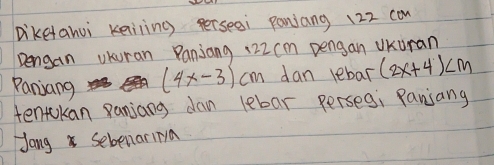 Diketahui keliling persegi panjang 122 cm
Dengan ukuran Panjang 122 cm Dengan ukuran
Panjang (4x-3) cm dan lebar (2x+4) cm
tentukan panjang dan lebar Persegi Panjang
Yang Sebenarnya